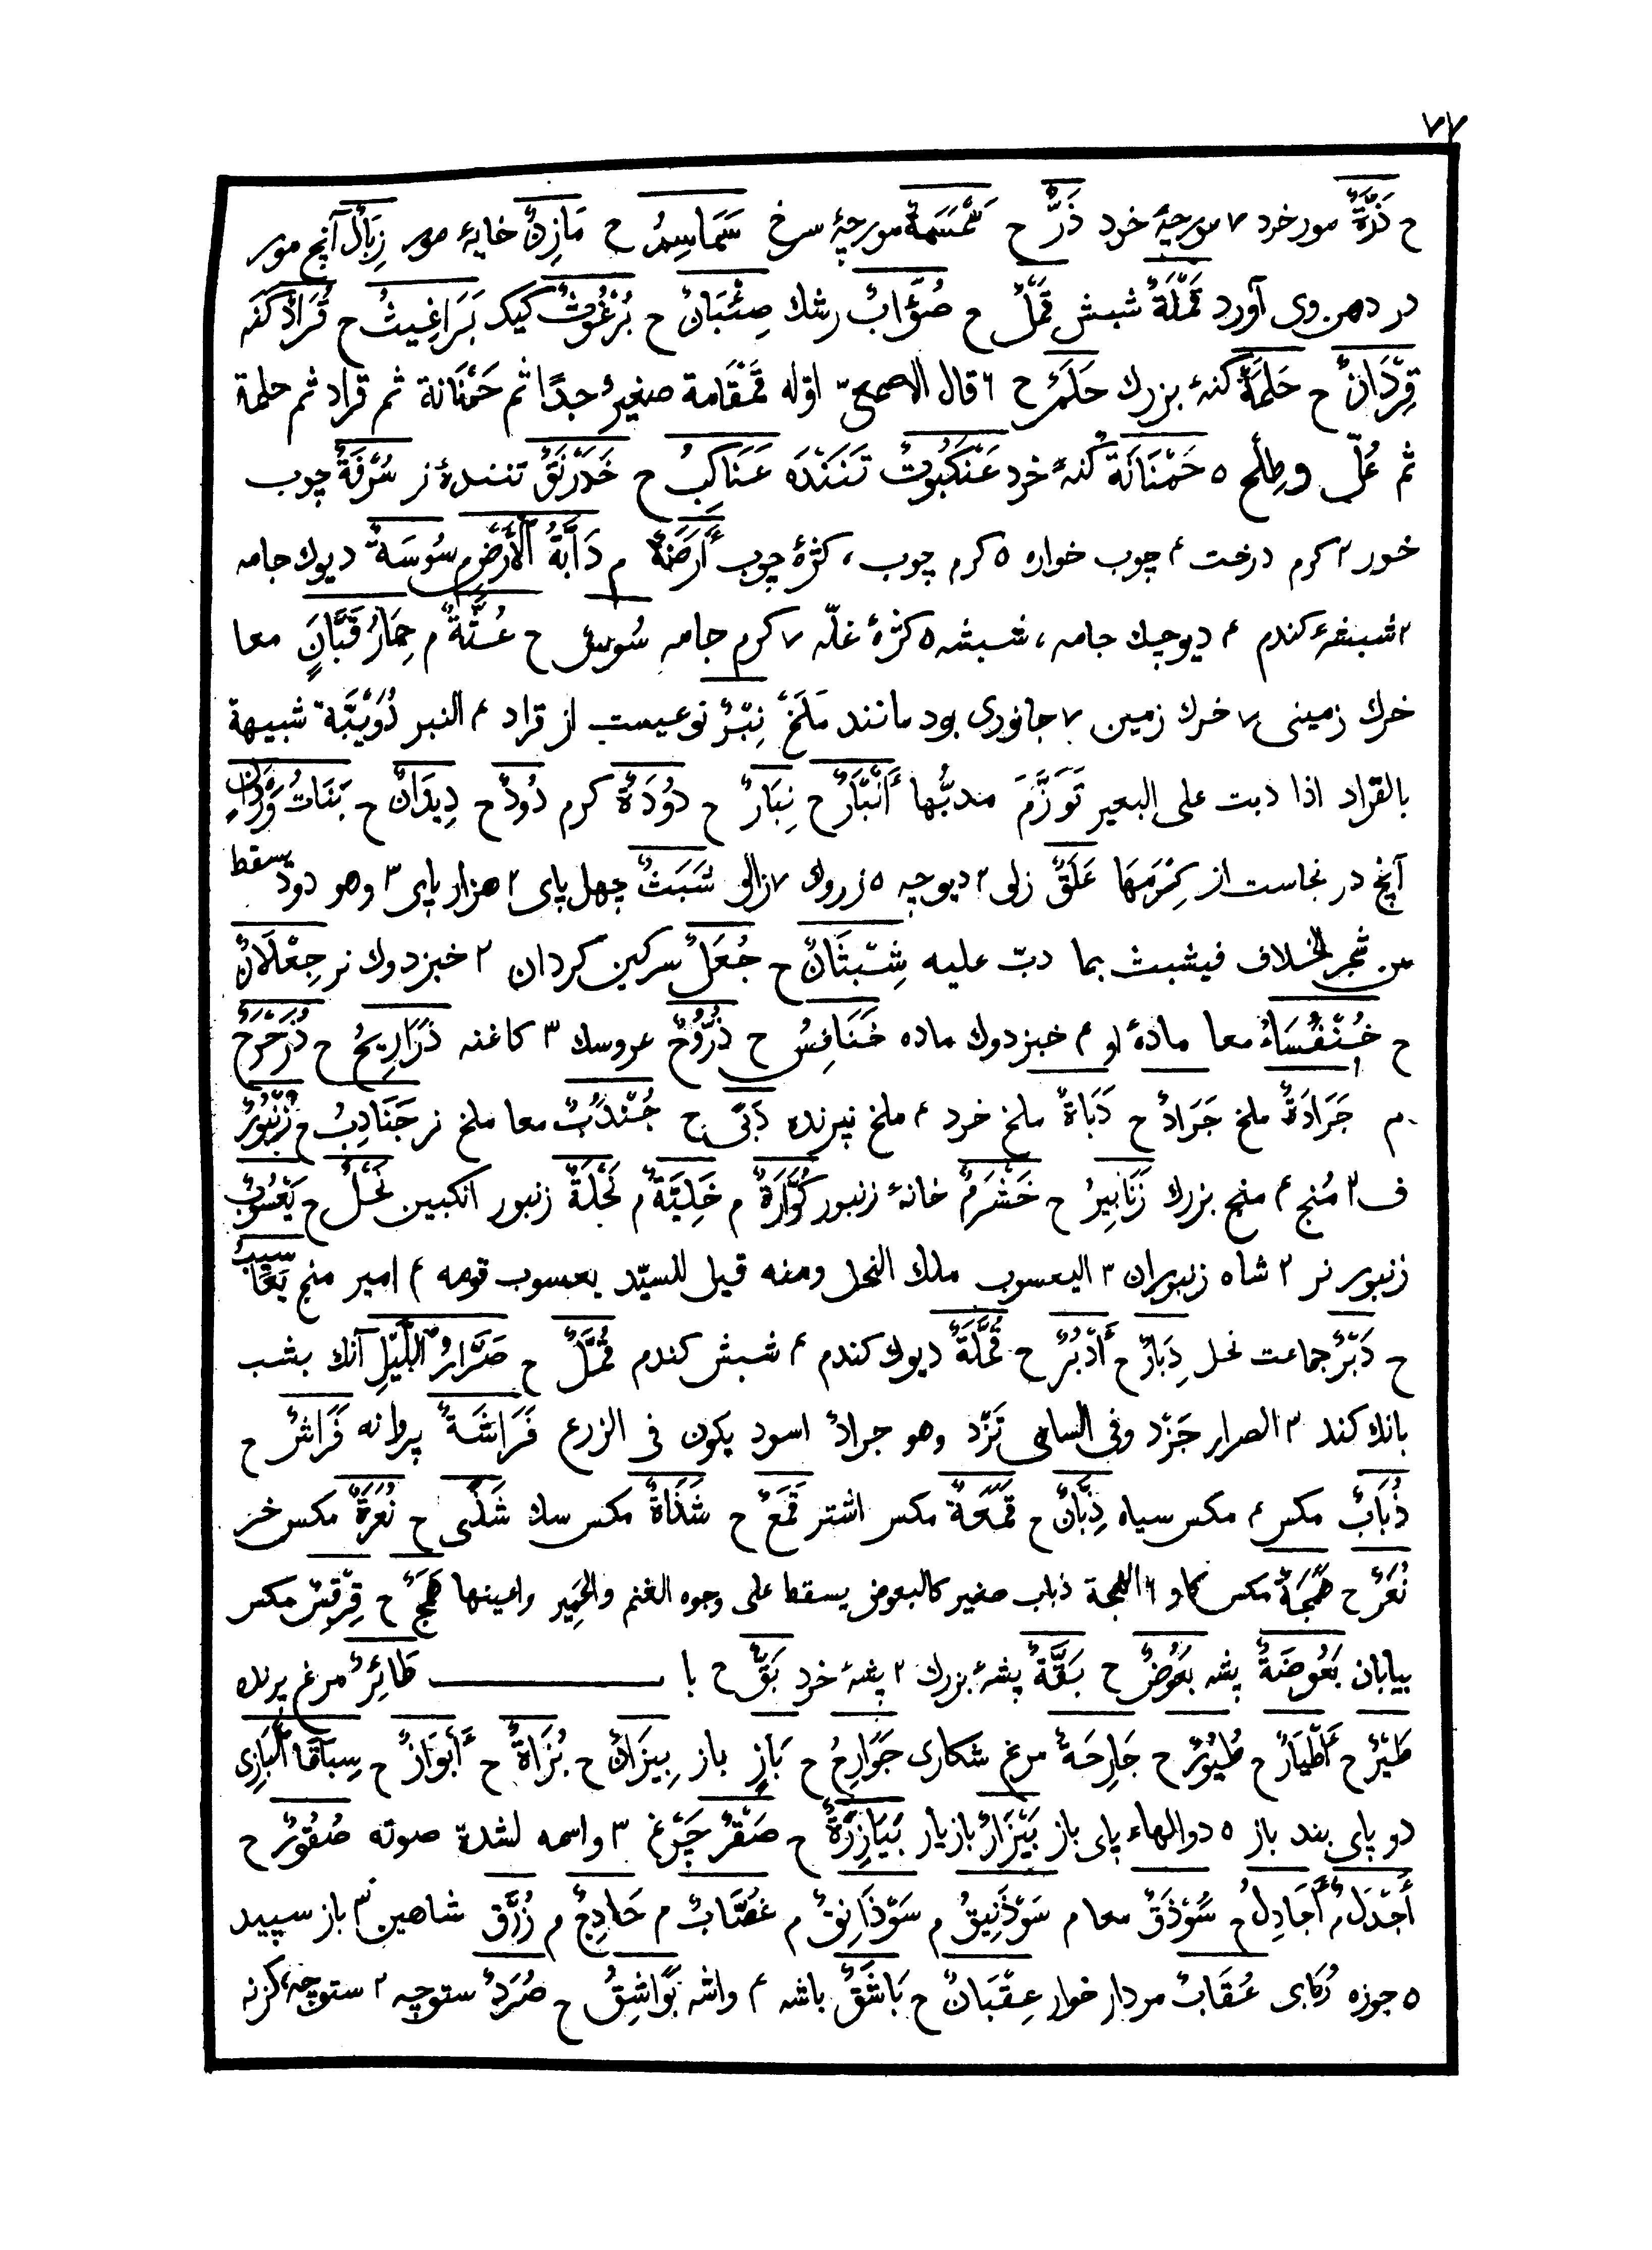 ٧٧
ح ذَرَّةٌ مور خرد ٧ مورچهٔ خرد ذَرٌّ ح سَمْسَمَةٌ مورچهٔ سرخ سَمَاسِمُ ح مَازِنٌ خایهٔ مور زِبَالٌ آنچ مور
در دهن وی آورد قَمْلَةٌ شبش قَمْلٌ ح صُؤَابٌ رشك صِئْبَانٌ ح بُرْغُوثٌ کیك بَرَاغِيثُ ح قُرَادٌ کنه
قِرْدَانٌ ح حَلَمَةٌ کنهٔ بزرك حَلَمٌ ح ٦ قال الاصمعیّ اوّله قَمْقَامة صغیرٌ جدًا ثم حَمْنَانة ثم قراد ثم حلمة
ثم عُلّ وطِلْح ٥ حَمْنَانَةٌ کنهٔ خرد عَنْكَبُوتٌ تَنَنْدَه عَنَاكِبُ ح خَدَرْنَقٌ تنندهٔ نر سُرْفَةٌ چوب
خور ٢ کرم درخت ۴ چوب خواره ٥ کرم چوب، کژهٔ چوب أَرَضَةٌ م دَابَّةُ الْأَرْضِ م سُوسَةٌ دیوك جامه
٢ شبشهٔ کندم ۴ دیوچك جامه، شبشه ٥ کژهٔ غلّه ٧ کرم جامه سُوسٌ ح عُثَّةٌ م حِمَارُ قَبَّانٍ معا
خرك زمینی ٧ خرك زمین ٧ جانوری بود مانند مَلَخْ نِبْرٌ نوعیست از قراد ۴ النبر دُوَيْبَّة شبیهة
بالقراد اذا دبت علی البعیر تَوَرَّمَ مدبُّها أَنْبَارٌ ح نِبَارٌ ح دُودَةٌ کرم دُودٌ ح دِيدَانٌ ح بَنَاتُ وَرْدَانٍ
آنچ در نجاست از کِرْمَهَا عَلَقٌ زلی ٢ دیوچه ٥ زروك ٧ زالو شَبَثٌ چهل پای ٢ هزار پای ٣ وهو دود یسقط
من شجر الخلاف فیشبث بما دبّ علیه شِبْثَانٌ ح جُعَلٌ سرکین کردان ٢ خبزدوك نر جِعْلَانٌ
ح خُنْفُسَاءُ معا مادهٔ او ۴ خبزدوك ماده خَنَافِسُ ح ذُرُّوحٌ عروسك ٣ کاغنه ذَرَارِيحُ ح ذُرَحْرَحٌ
م جَرَادَةٌ ملخ جَرَادٌ ح دَبَاةٌ ملخ خرد ۴ ملخ نپرنده دَبًى ح جُنْدَبٌ معا ملخ نر جَنَادِبُ ح زُنْبُورٌ
ف ٣ مُنج ۴ منج بزرك زَنَابِيرُ ح خَشْرَمٌ خانهٔ زنبور كُوَّارَةٌ م خَلِيَّةٌ م نَحْلَةٌ زنبور انکبین نَحْلٌ ح يَعْسُوبٌ
زنبور نر ٢ شاه زنبوران ٣ الیعسوب ملك النحل ومنه قیل للسیّد یعسوب قومه ۴ امیر منج يَعَاسِيبُ
ح دَبْرٌ جماعت نحل دِبَارٌ ح أَدْبُرٌ ح قُمَّلَةٌ دیوك کندم ۴ شبش کندم قُمَّلٌ ح صَرَّارُ اللَّيْلِ آنك بشب
بانك کند ٣ الصرار جَزْد وفی السامی تَزْد وهو جرادٌ اسود یکون فی الزرع فَرَاشَةٌ پروانه فَرَاشٌ ح
ذُبَابٌ مکس ۴ مکس سیاه ذِبَّانٌ ح قَمَعَةٌ مکس اشتر قَمَعٌ ح شَذَاةٌ مکس سك شَذًى ح نُعَرَةٌ مکس خر
نُعَرٌ ح هَمَجَةٌ مکس کاو ٦ الهمجة ذباب صغیر کالبعوض یسقط علی وجوه الغنم والحمیر واعینها هَمَجٌ ح قِرْقِسٌ مکس
بیابان بَعُوضَةٌ پشه بَعُوضٌ ح بَقَّةٌ پشهٔ بزرك ٢ پشهٔ خرد بَقٌّ ح با طَائِرٌ مرغ پرنده
طَيْرٌ ح أَطْيَارٌ ح طُيُورٌ ح جَارِحَةٌ مرغ شکاری جَوَارِحُ ح بَازٍ باز بِيزَانٌ ح بُزَاةٌ ح أَبْوَازٌ ح سِبَاقَا الْبَازِی
دو پای بند باز ٥ دوالهاء پای باز بَيْزَارٌ بازیار بَيَازِرَةٌ ح صَقْرٌ چَرْغ ٣ واسمه لشدة صوته صُقُورٌ ح
أَجْدَلٌ م أَجَادِلُ ح سَوْذَقٌ معا م سَوْذَنِيقٌ م سَوْذَانِقٌ م م م زُرَّقٌ شاهین ٣ باز سپید
٥ جوزه رُکابی عُقَابٌ مردار خوار عِقْبَانٌ ح بَاشَقٌ باشه ۴ واشه بَوَاشِقُ ح صُرَدٌ ستوچه ٢ ستوچهٔ